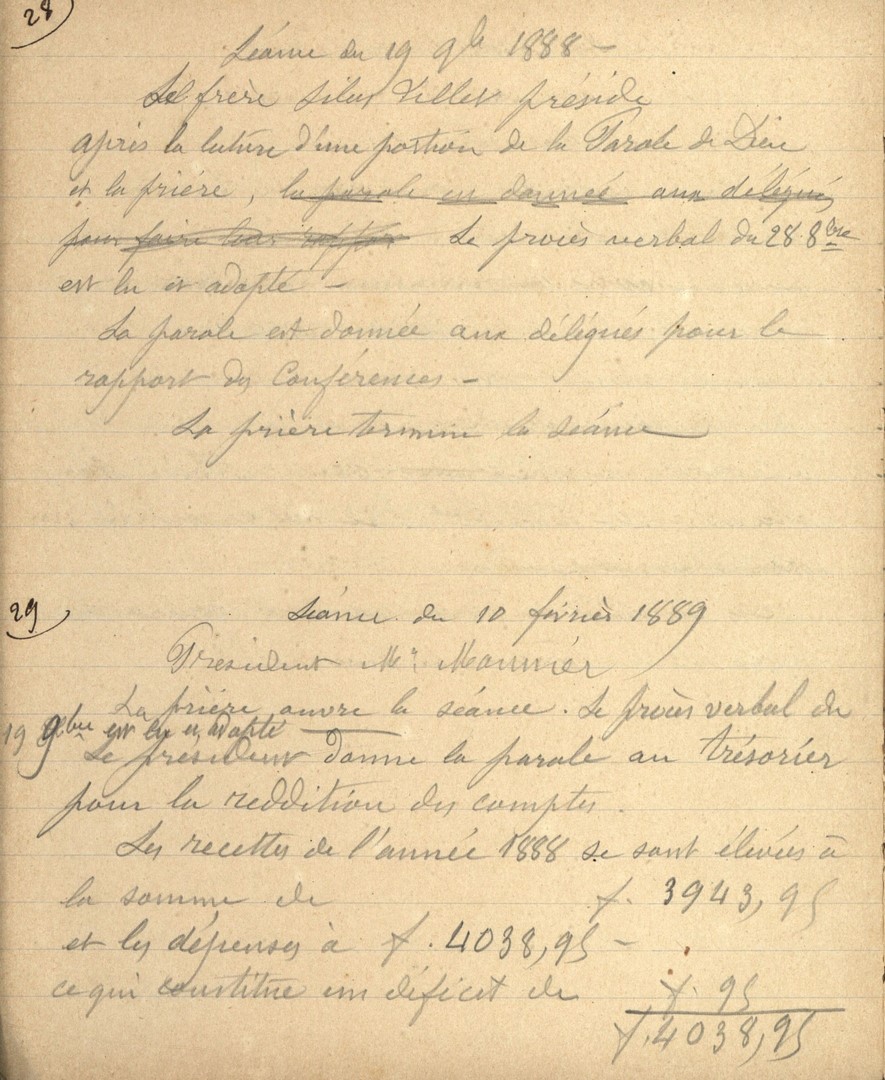 28
Séance du 19 9b 1888 –
Le frère Silas Villet préside
après la lecture d'une portion de la Parole de Dieu
et la prière, la parole est donnée aux délégués
pour faire leur rapport Le procès verbal du 28 8bre
est lu et adopté –
La parole est donnée aux délégués pour le
rapport des Conférences –
La prière termine la séance
29
Séance du 10 février 1889
President Mr Mounier
La prière ouvre la séance. Le procès verbal du
19 9bre est lu et adopté
Le président donne la parole au trésorier
pour la reddition des comptes.
Les recettes de l'année 1888 se sont élevées à
la somme de f. 3943,95
et les dépenses à f. 4038,95 –
ce qui constitue un déficit de f. 95
f. 4038,95